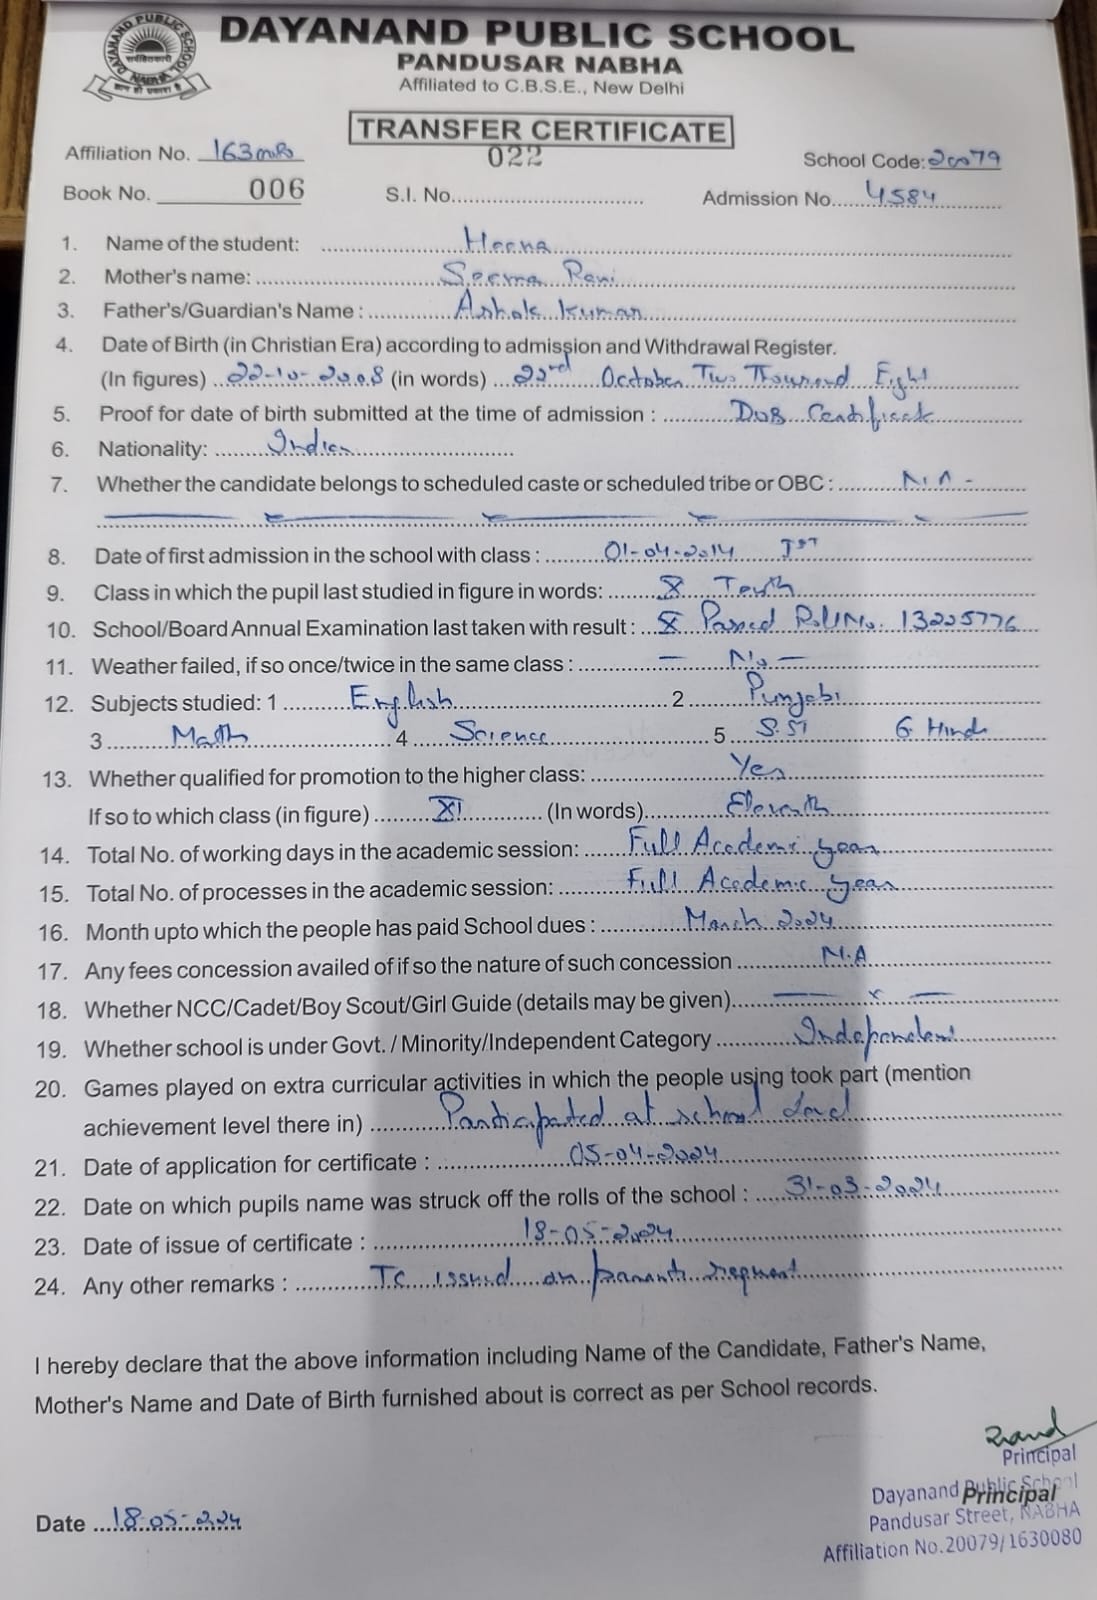 DAYANAND PUBLIC SCHOOL
PANDUSAR NABHA
Affiliated to C.B.S.E., New Delhi
TRANSFER CERTIFICATE
022
Affiliation No. School Code: 20079
Book No. 006 S.I. No. Admission No. 4584
1. Name of the student: Heena
2. Mother's name: Seema Rani
3. Father's/Guardian's Name : Ashok Kumar
4. Date of Birth (in Christian Era) according to admission and Withdrawal Register.
(In figures) 22-10-2008 (in words) 22nd October Two Thousand Eight
5. Proof for date of birth submitted at the time of admission : DOB Certificate
6. Nationality: Indian
7. Whether the candidate belongs to scheduled caste or scheduled tribe or OBC : N.A -
8. Date of first admission in the school with class : 01-04-2014 Ist
9. Class in which the pupil last studied in figure in words: X Tenth
10. School/Board Annual Examination last taken with result : X Passed Roll No. 13225776
11. Weather failed, if so once/twice in the same class : — No —
12. Subjects studied: 1 English 2 Punjabi
3 Math 4 Science 5 S.St 6 Hindi
13. Whether qualified for promotion to the higher class: Yes
If so to which class (in figure) XI (In words) Eleventh
14. Total No. of working days in the academic session: Full Academic year
15. Total No. of processes in the academic session: Full Academic year
16. Month upto which the people has paid School dues : March 2024
17. Any fees concession availed of if so the nature of such concession N.A
18. Whether NCC/Cadet/Boy Scout/Girl Guide (details may be given) — x —
19. Whether school is under Govt. / Minority/Independent Category Independent
20. Games played on extra curricular activities in which the people using took part (mention
achievement level there in) Participated at school level
21. Date of application for certificate : 05-04-2024
22. Date on which pupils name was struck off the rolls of the school : 31-03-2024
23. Date of issue of certificate : 18-05-2024
24. Any other remarks : TC issued on parents request
I hereby declare that the above information including Name of the Candidate, Father's Name,
Mother's Name and Date of Birth furnished about is correct as per School records.
Principal
Dayanand Public School
Principal
Pandusar Street, NABHA
Date 18-05-2024
Affiliation No.20079/1630080